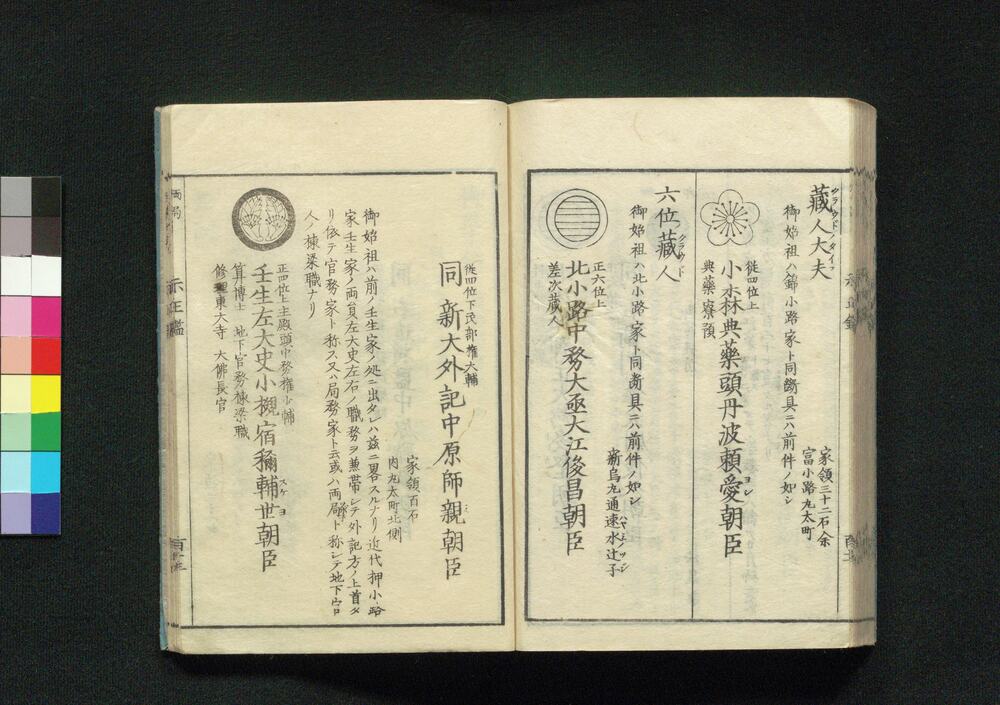 藏人大夫
クラウド タイフ
御始祖ハ錦小路家ト同斷具ニハ前件ノ如シ
家領三十二石八余
富小路丸太町
従四位上
小森典藥頭丹波頼愛朝臣
ヨシ
典藥寮預
六位藏人
クラウド
御始祖ハ北小路家ト同断具ニハ前件ノ如シ
新烏丸通速水辻子
ハヤミツシ
正六位上
北小路中務大丞大江俊昌朝臣
差次蔵人
従四位下民部権大輔
同 新大外記中原師親朝臣
家領百石
内丸太町北側
御始祖ハ前ノ壬生家ノ処ニ出タレハ茲ニ畧スルナリ近代押小路
家壬生家ノ両員左大史左右ノ職務ヲ兼帯シテ外記方ノ上首タ
リ依テ官務家ト称ス又ハ局務家ト云或ハ両局ト称シテ地下官
人ノ棟梁職ナリ
正四位上主殿頭中務権少輔
壬生左大史小槻宿祢輔世朝臣
スケヨ
算博士 地下官務棟梁職
修理東大寺大佛長官
両局